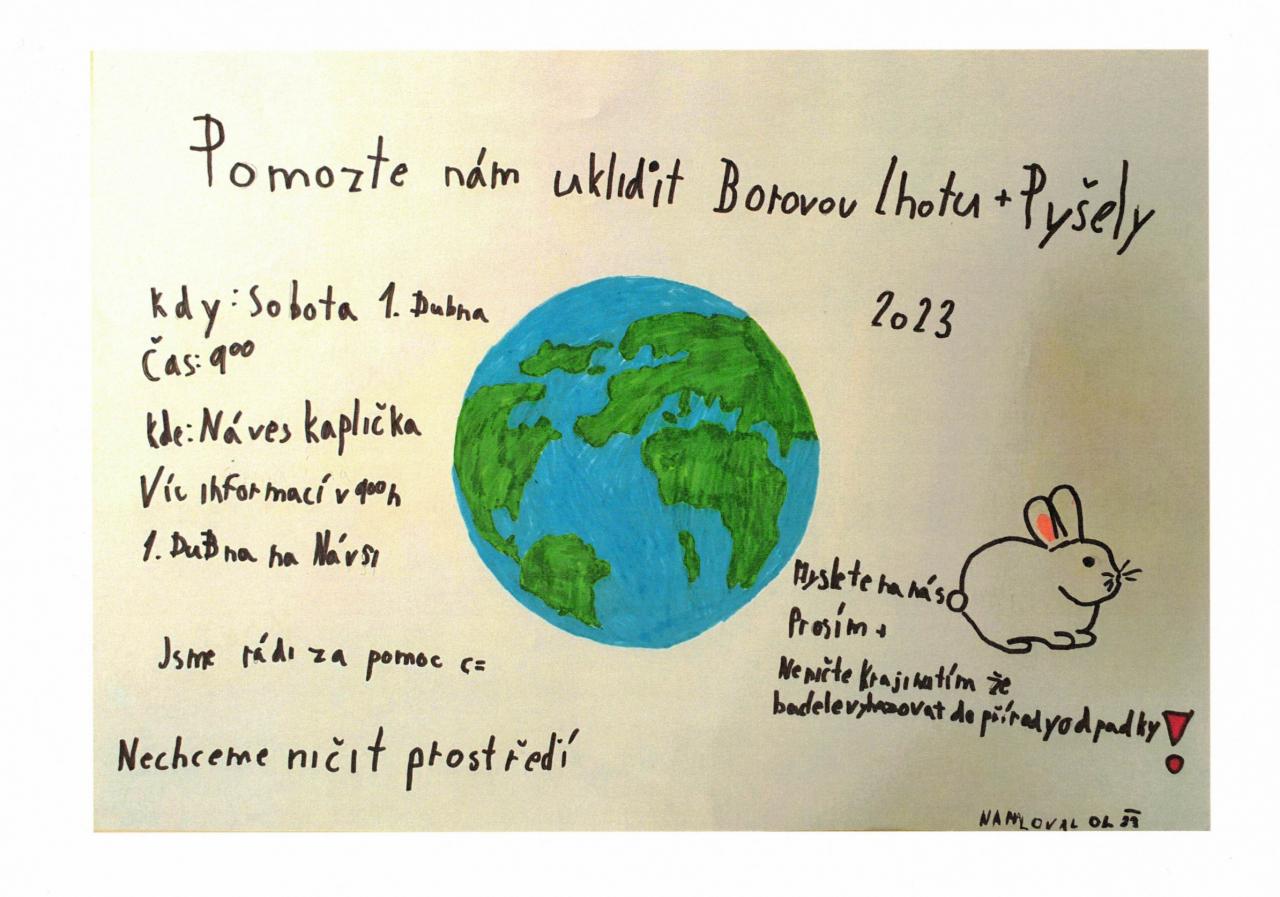 Pomozte nám uklidit Borovou Lhotu + Pyšely
2023
Kdy: Sobota 1. Dubna
Čas: 9⁰⁰
Kde: Náves kaplička
Víc informací v 9⁰⁰ h
1. DuBna na Návsi
Jsme rádi za pomoc c=
Nechceme ničit prostředí
Myslete na nás
Prosím +
Neničte Krajinu tím že
budete vyhazovat do přírody odpadky!
NAMLOVAL